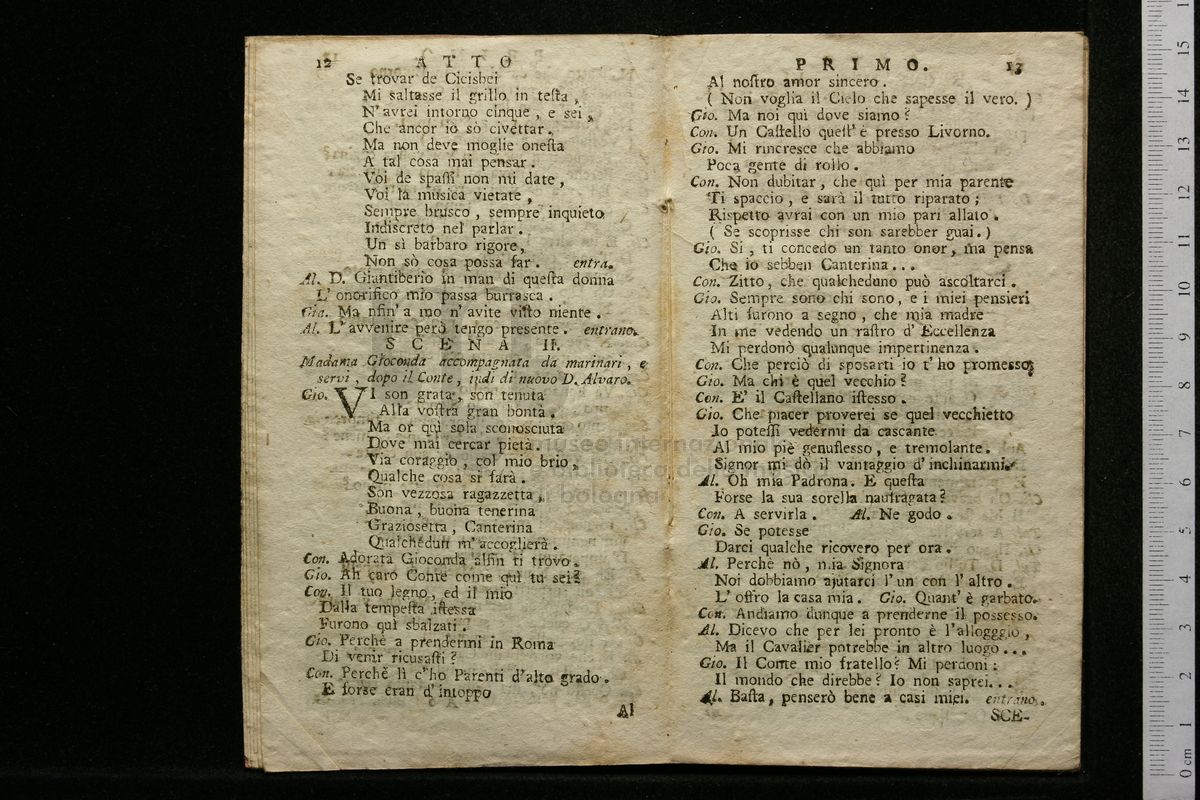 12 ATTO
Se trovar de Cicisbei
Mi saltasse il grillo in testa,
N'avrei intorno cinque, e sei,
Che ancor io sò civettar.
Ma non deve moglie onesta
A tal cosa mai pensar.
Voi de spassi non mi date,
Voi la musica vietate,
Sempre brusco, sempre inquieto
Indiscreto nel parlar.
Un sì barbaro rigore,
Non sò cosa possa far. entra.
Al. D. Giantiberio in man di questa donna
L'onorifico mio passa burrasca.
Gia. Ma nfin' a mo n'avite visto niente.
Al. L'avvenire però tengo presente. entrano.
SCENA II.
Madama Gioconda accompagnata da marinari, e
servi, dopo il Conte, indi di nuovo D. Alvaro.
Gio. VI son grata, son tenuta
Alla vostra gran bontà.
Ma or quì sola sconosciuta
Dove mai cercar pietà.
Via coraggio, col mio brio,
Qualche cosa si farà.
Son vezzosa ragazzetta,
Buona, buona tenerina
Graziosetta, Canterina
Qualchedun m'accoglierà.
Con. Adorata Gioconda alfin ti trovo.
Gio. Ah caro Conte come quì tu sei?
Con. Il tuo legno, ed il mio
Dalla tempesta istessa
Furono quì sbalzati.
Gio. Perchè a prendermi in Roma
Di venir ricusasti?
Con. Perchè lì c'ho Parenti d'alto grado.
E forse eran d'intoppo
Al
PRIMO. 13
Al nostro amor sincero.
( Non voglia il Cielo che sapesse il vero. )
Gio. Ma noi quì dove siamo?
Con. Un Castello quest'è presso Livorno.
Gio. Mi rincresce che abbiamo
Poca gente di rollo.
Con. Non dubitar, che quì per mia parente
Ti spaccio, e sarà il tutto riparato;
Rispetto avrai con un mio pari allato.
( Se scoprisse chi son sarebber guai. )
Gio. Si, ti concedo un tanto onor, ma pensa
Che io sebben Canterina...
Con. Zitto, che qualcheduno può ascoltarci.
Gio. Sempre sono chi sono, e i miei pensieri
Alti furono a segno, che mia madre
In me vedendo un rastro d'Eccellenza
Mi perdonò qualunque impertinenza.
Con. Che perciò di sposarti io t'ho promesso;
Gio. Ma chi è quel vecchio?
Con. E' il Castellano istesso.
Gio. Che piacer proverei se quel vecchietto
Io potessi vedermi da cascante
Al mio piè genuflesso, e tremolante.
Signor mi dò il vantaggio d'inchinarmi.
Al. Oh mia Padrona. E questa
Forse la sua sorella naufragata?
Con. A servirla. Al. Ne godo.
Gio. Se potesse
Darci qualche ricovero per ora.
Al. Perchè nò, mia Signora
Noi dobbiamo ajutarci l'un con l'altro.
L'offro la casa mia. Gio. Quant'è garbato.
Con. Andiamo dunque a prenderne il possesso.
Al. Dicevo che per lei pronto è l'allogggio,
Ma il Cavalier potrebbe in altro luogo...
Gio. Il Conte mio fratello? Mi perdoni:
Il mondo che direbbe? Io non saprei...
Al. Basta, penserò bene a casi miei. entrano.
SCE-
museo internazionale
biblioteca della musica
di bologna
0 cm 1 2 3 4 5 6 7 8 9 10 11 12 13 14 15